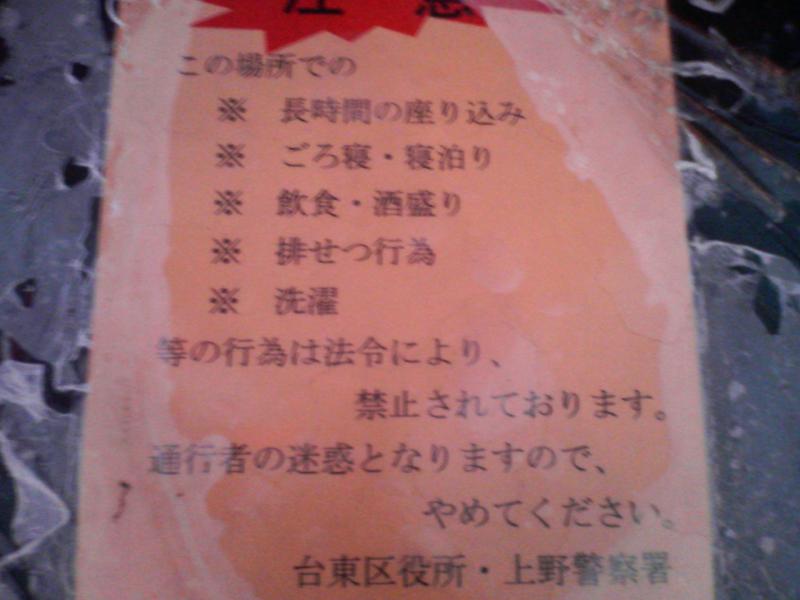 注意
この場所での
※ 長時間の座り込み
※ ごろ寝・寝泊り
※ 飲食・酒盛り
※ 排せつ行為
※ 洗濯
等の行為は法令により、
禁止されております。
通行者の迷惑となりますので、
やめてください。
台東区役所・上野警察署